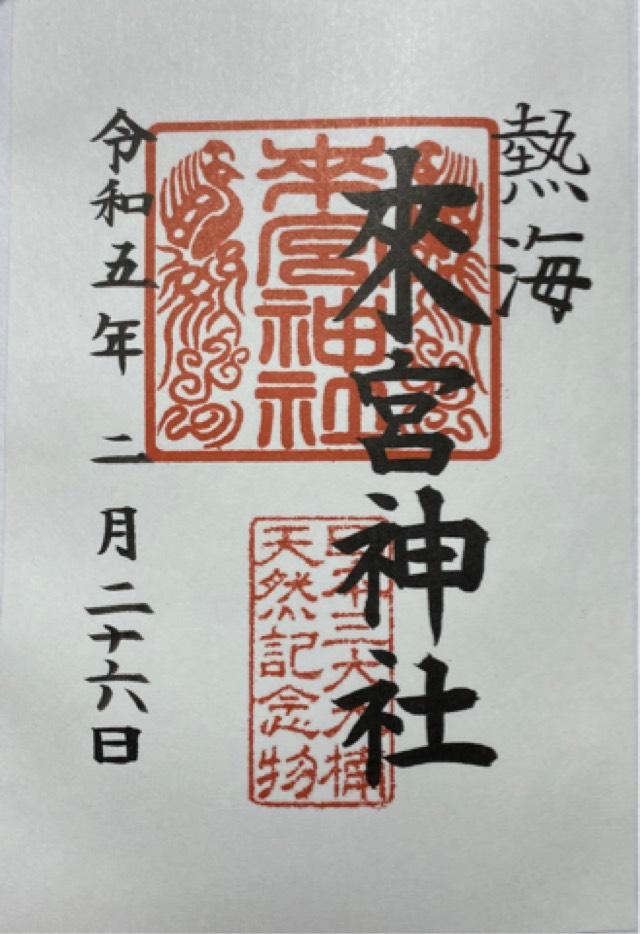 熱海
來宮神社
令和五年二月二十六日
來宮神社
日本三大大楠
天然記念物